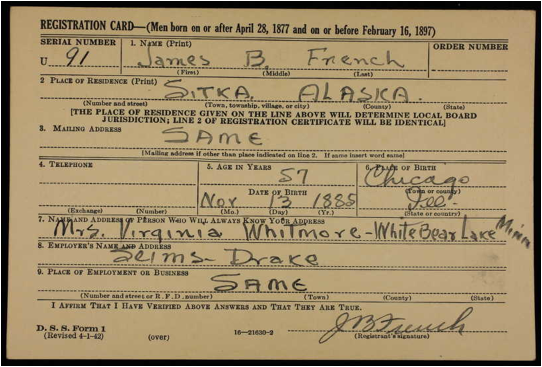 REGISTRATION CARD—(Men born on or after April 28, 1877 and on or before February 16, 1897)
SERIAL NUMBER 1. NAME (Print) ORDER NUMBER
U 91 James B. French
(First) (Middle) (Last)
2 PLACE OF RESIDENCE (Print)
SITKA. ALASKA.
(Number and street) (Town, township, village, or city) (County) (State)
[THE PLACE OF RESIDENCE GIVEN ON THE LINE ABOVE WILL DETERMINE LOCAL BOARD
JURISDICTION; LINE 2 OF REGISTRATION CERTIFICATE WILL BE IDENTICAL]
3. MAILING ADDRESS
SAME
[Mailing address if other than place indicated on line 2. If same insert word same]
4. TELEPHONE 5. AGE IN YEARS 6. PLACE OF BIRTH
57 Chicago
DATE OF BIRTH (Town or county)
Nov 13 1885 Ill.
(Exchange) (Number) (Mo.) (Day) (Yr.) (State or country)
7. NAME AND ADDRESS OF PERSON WHO WILL ALWAYS KNOW YOUR ADDRESS
Mrs. Virginia Whitmore - White Bear Lake Minn
8. EMPLOYER'S NAME AND ADDRESS
Seims- Drake
9. PLACE OF EMPLOYMENT OR BUSINESS
SAME
(Number and street or R. F. D. number) (Town) (County) (State)
I AFFIRM THAT I HAVE VERIFIED ABOVE ANSWERS AND THAT THEY ARE TRUE.
D. S. S. Form 1 J B French
(Revised 4-1-42) (over) 16—21630-2 (Registrant's signature)